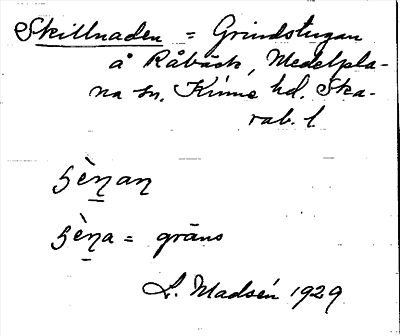 Skillnaden = Grindstugan
å Råbäck, Medelpla-
na sn. Kinne hd. Ska-
rab. l.
gräns
L. Madsén 1929